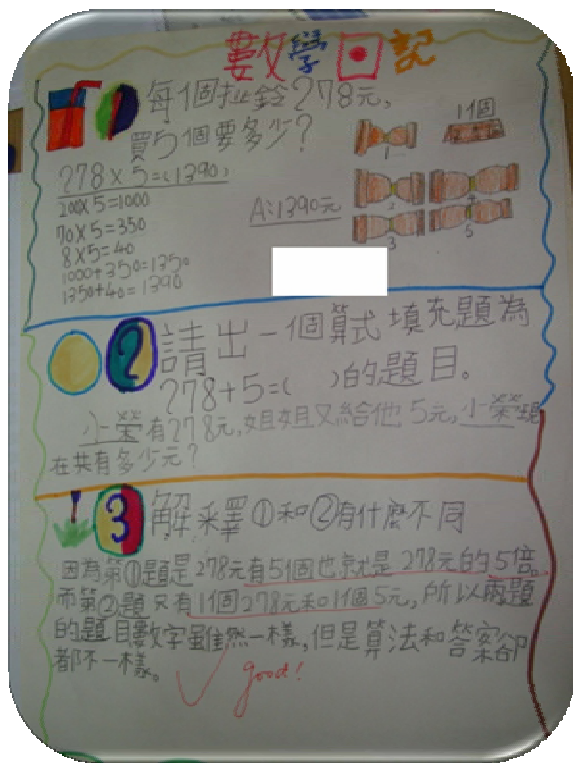 數學日記
1 每個扯鈴278元,
買5個要多少?
1個
278×5=(1390)
200×5=1000
70×5=350
8×5=40
1000+350=1350
1350+40=1390
A:1390元
1
2
3
4
5
2 請出一個算式填充題為
278+5=( )的題目。
小榮有278元,姐姐又給他5元,小榮現
在共有多少元?
3 解釋①和②有什麼不同
因為第①題是278元有5個也就是278元的5倍。
而第②題只有1個278元和1個5元,所以兩題
的題目數字雖然一樣,但是算法和答案卻
都不一樣。
good!